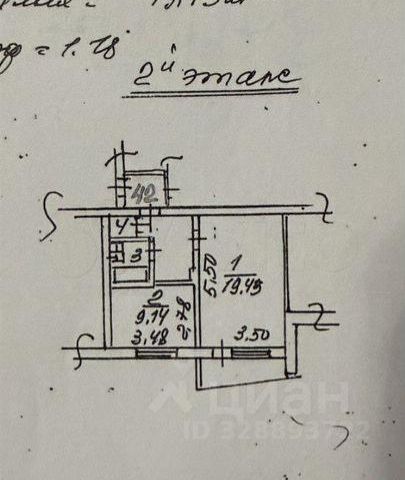 = 1.18
2й этаж
42
4
3
1
19.45
5.50
2
9.14
2.78
3.48
3.50
циан
ID 328893732